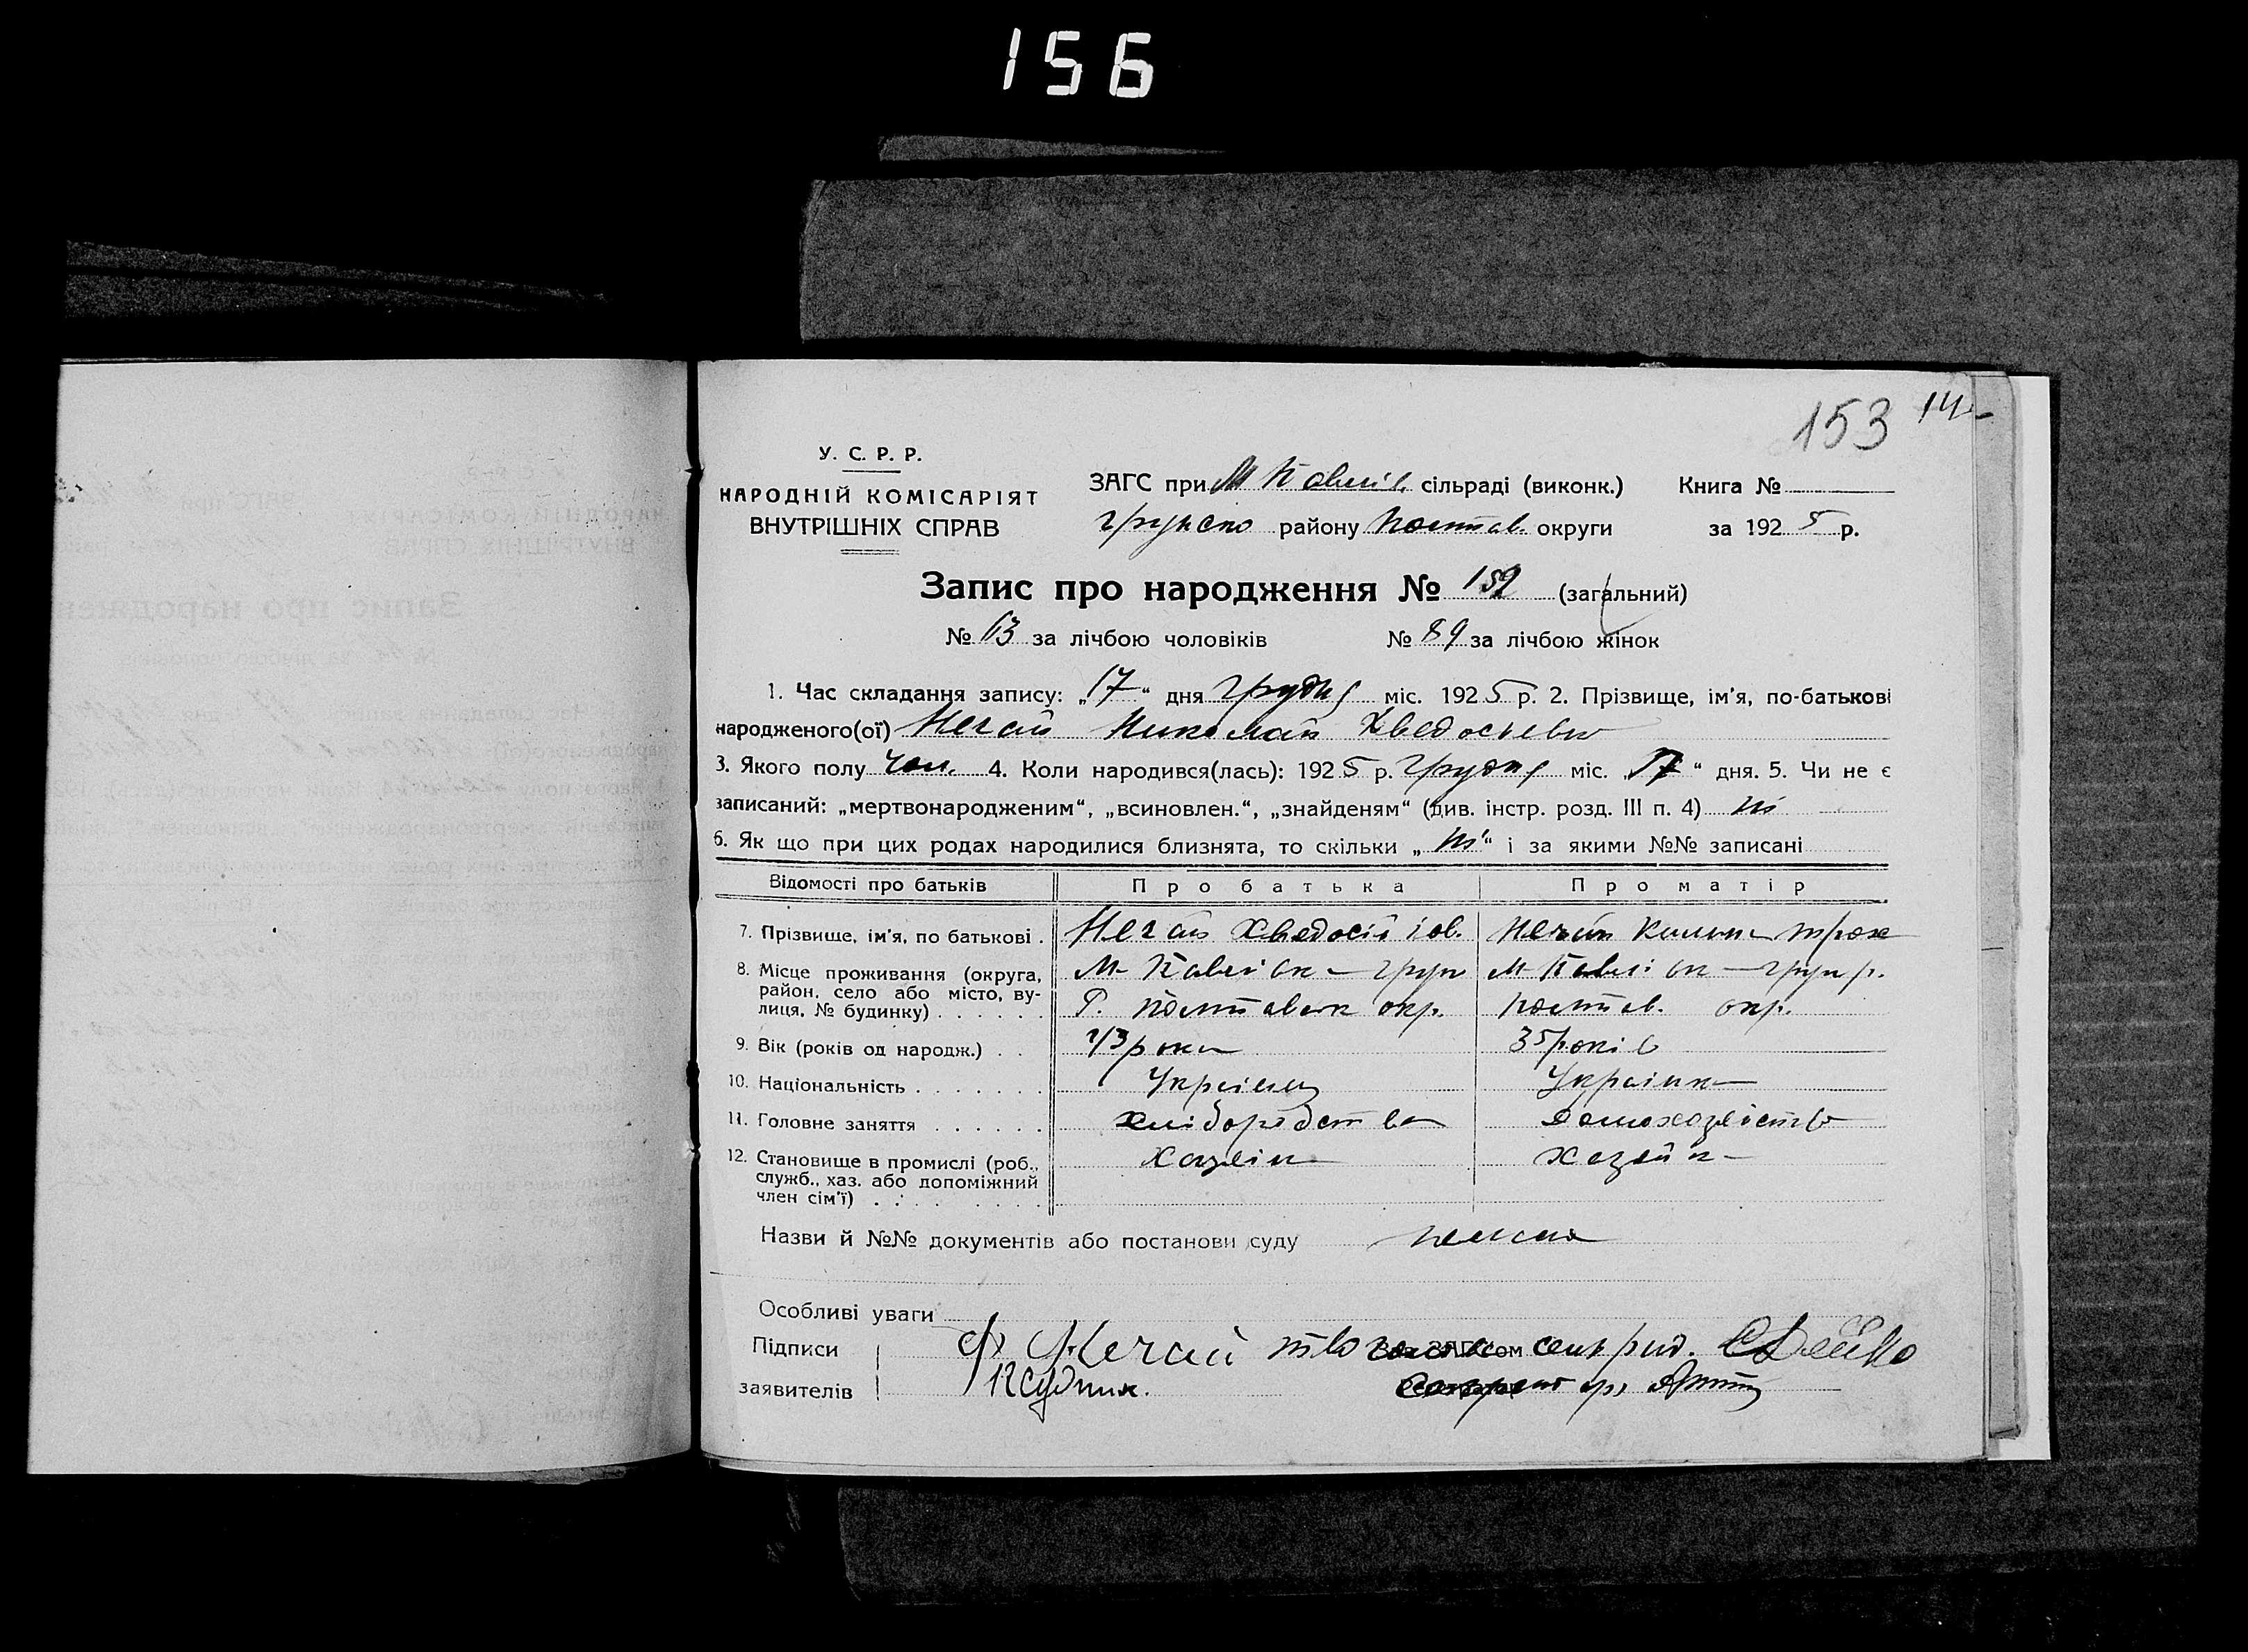 156
153 14
У. С. Р. Р.
НАРОДНІЙ КОМІСАРІЯТ
ВНУТРІШНІХ СПРАВ
ЗАГС при сільраді (виконк.) Книга №
району Полтав. округи за 1925 р.
Запис про народження № 152 (загальний)
№ 63 за лічбою чоловіків № 89 за лічбою жінок
1. Час складання запису: „17“ дня грудня міс. 1925 р. 2. Прізвище, ім'я, по-батькові
народженого(ої) Нечай Николай Хведосьевич
3. Якого полу чол. 4. Коли народився(лась): 1925 р. грудня міс. „17“ дня. 5. Чи не є
записаний: „мертвонародженим“, „всиновлен.“, „знайденям“ (див. інстр. розд. III п. 4) ні
6. Як що при цих родах народилися близнята, то скільки „ні“ і за якими №№ записані
Відомості про батьків Про батька Про матір
7. Прізвище, ім'я, по батькові . Нечай Хведосій Нечай
8. Місце проживання (округа, район, село або місто, вулиця, № будинку) . . . . . . М-
Р. окр. Полтав. окр.
9. Вік (років од народж.) . . 43 роки 35 років
10. Національність . . . . . . . Українец Українка
11. Головне заняття . . . . . . хліборобство домохозяйство
12. Становище в промислі (роб., служб., хаз. або допоміжний член сім'ї) . . . . . . Хазяїн хазяйк
Назви й №№ документів або постанови суду немає
Особливі уваги
Підписи Ф Нечай
заявителів